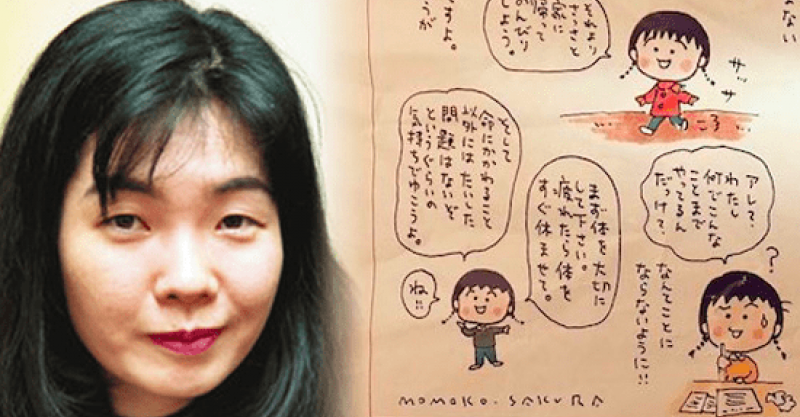 ない
それより
さっさと
家に
帰って
のんびり
しよう。
すよ。
うが
サッサ
ころ
アレ?、
わたし
何でこんな
ことまで
やってるん
だっけ?、
?
なんてことに
ならないように!!
まず体を大切に
して下さい。
疲れたら体を
すぐ休ませて。
そして
命にかかわること
以外にはたいした
問題はないぞ
というぐらいの
気持ちでゆこうよ。
ね!!
MOMOKO.SAKURA